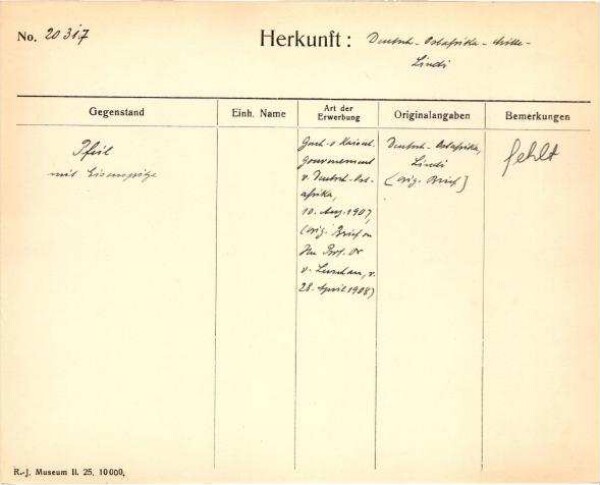 No. 20317
Herkunft: Deutsch-Ostafrika-Küste-
Lindi
Gegenstand
Einh. Name
Art der
Erwerbung
Originalangaben
Bemerkungen
Pfeil
mit Eisenspitze
Gesch. v. Kaiserl.
Gouvernement
v. Deutsch-Ost-
afrika,
10. Aug. 1907,
(orig. Brief an
Hn Prof. Dr
v. Luschan, v.
28. April 1908)
Deutsch-Ostafrika,
Lindi
(orig. Brief)
fehlt
R.-J. Museum II. 25. 10000.